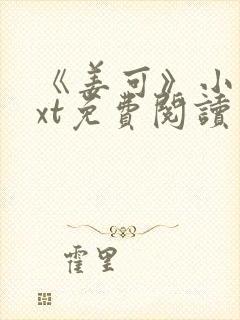 《姜可》小
xt免費閱讀
霍里